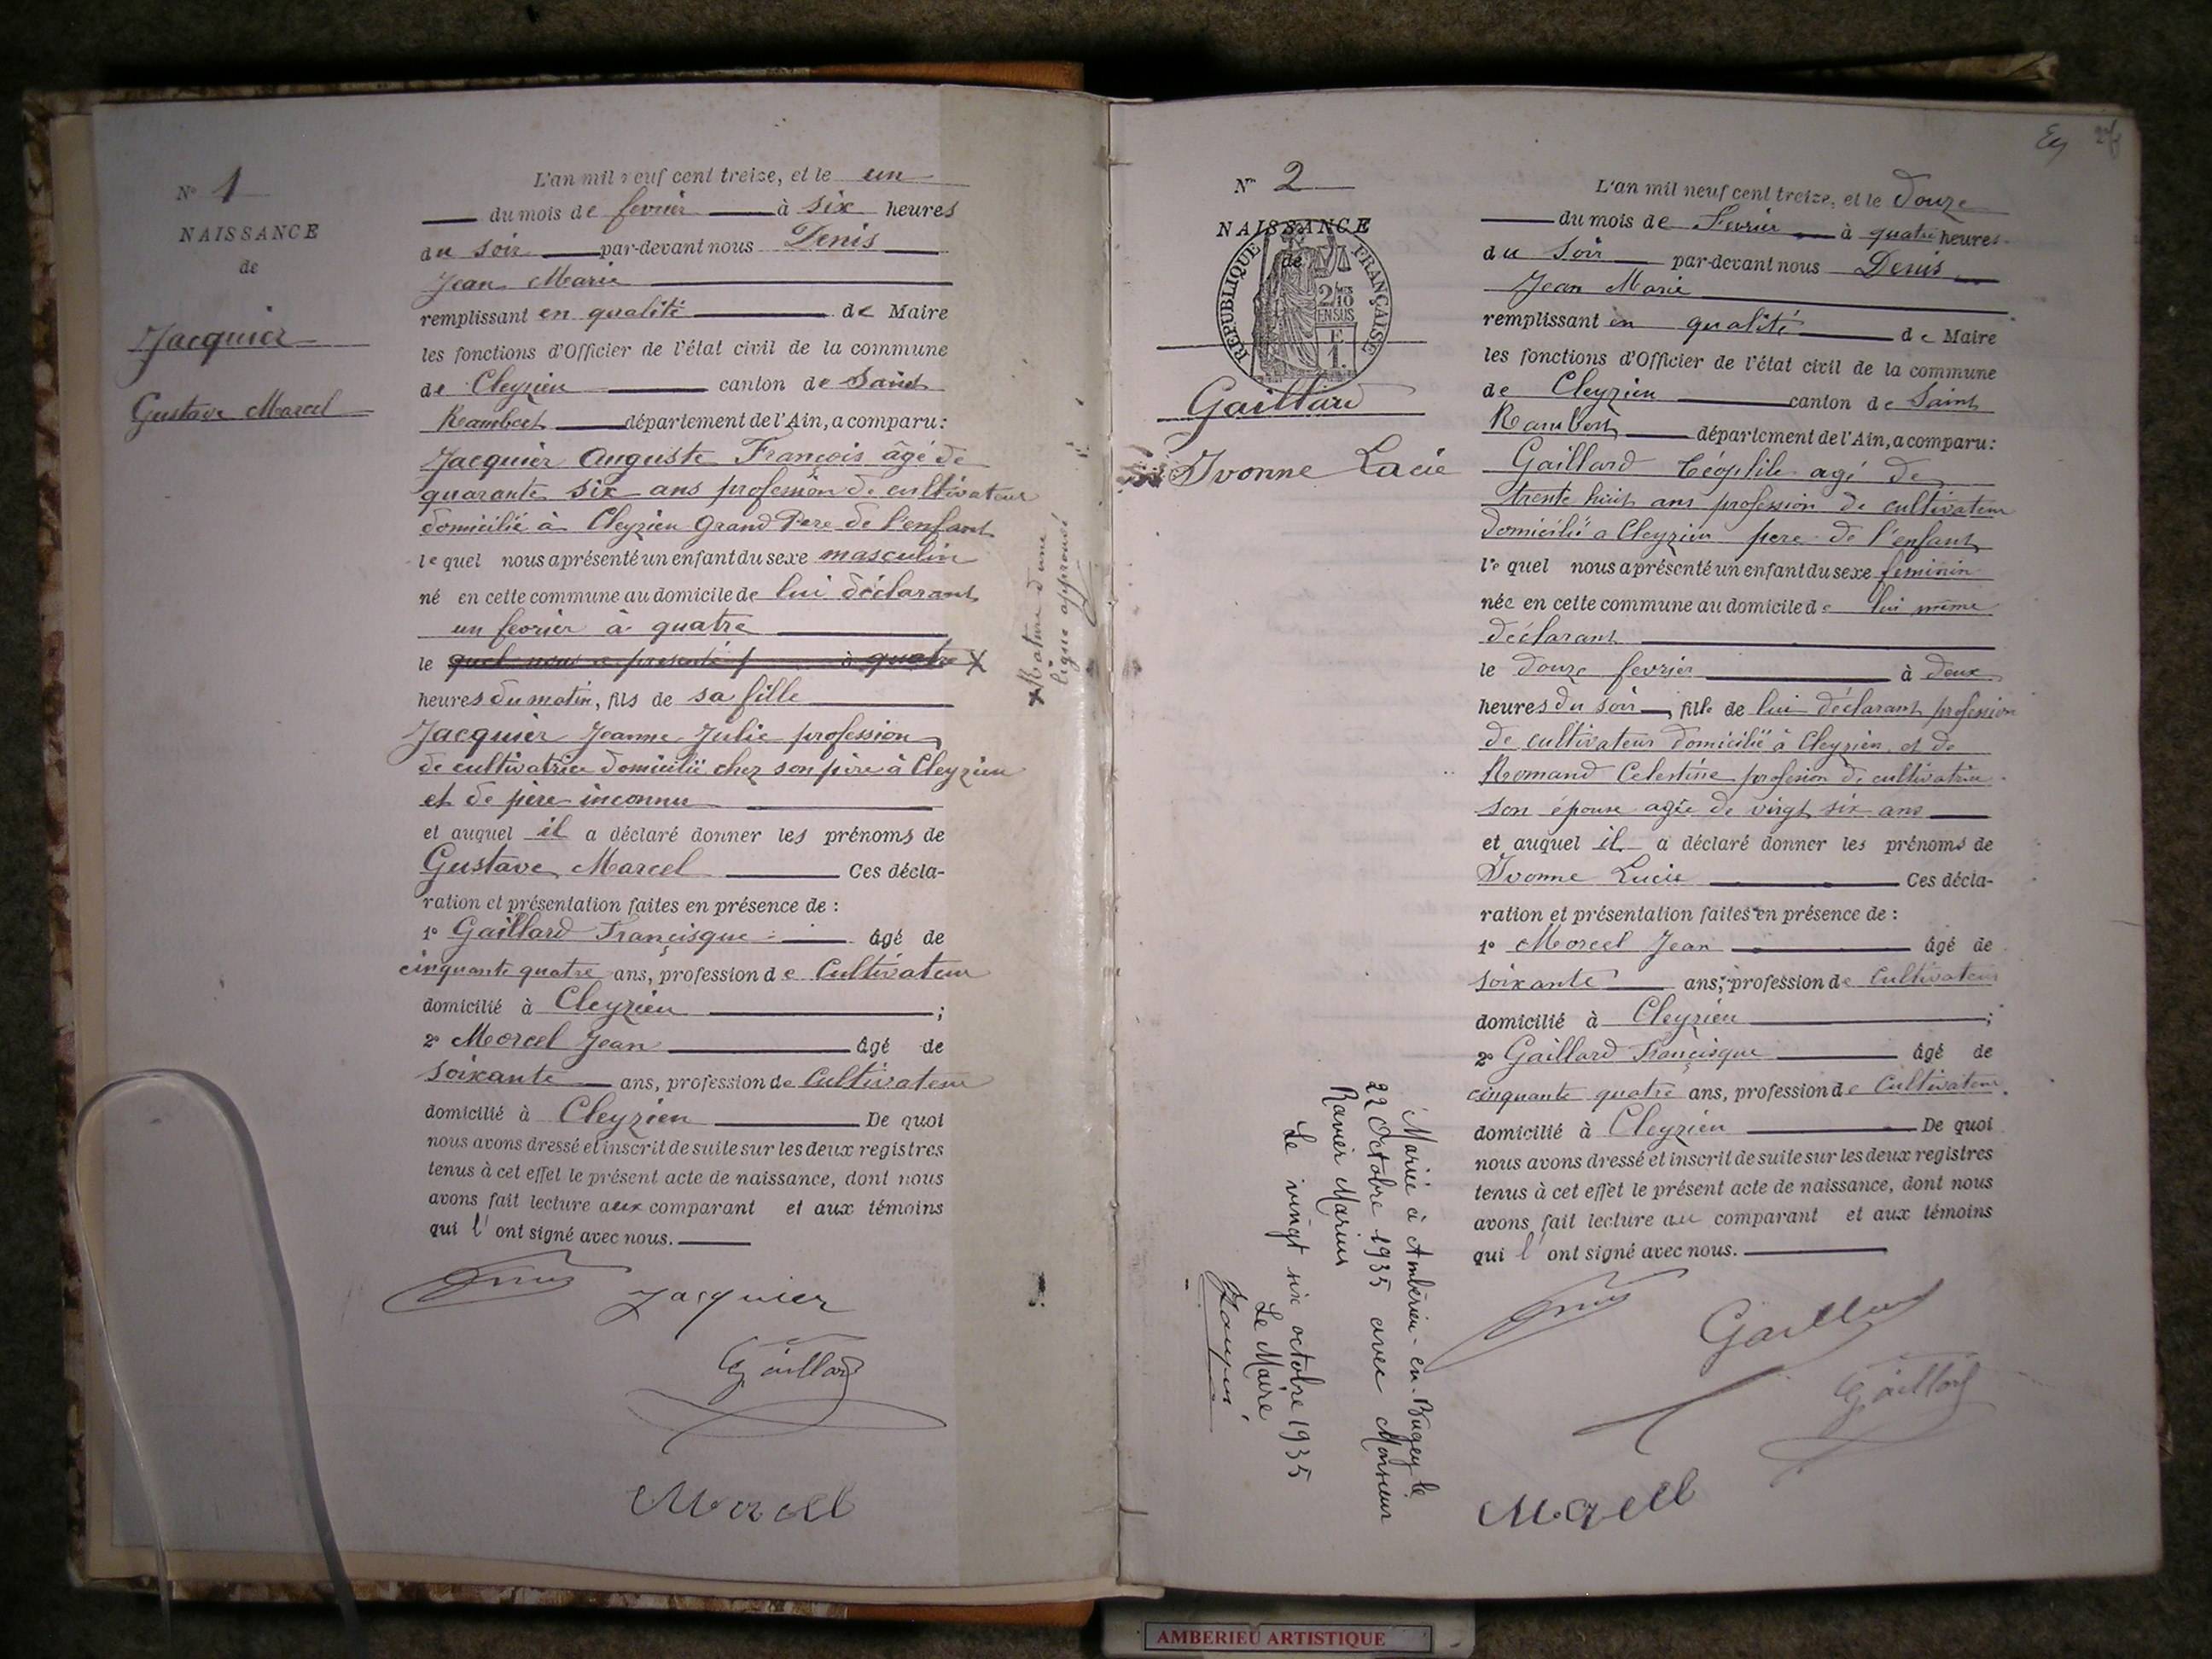 N° 1
NAISSANCE
de
Jacquier
Gustave Marcel
L'an mil neuf cent treize, et le un
du mois de fevrier à six heures
du soir par-devant nous Denis
Jean Marie
remplissant en qualité de Maire
les fonctions d'Officier de l'état civil de la commune
de Cleyzieu canton de Saint
Rambert département de l'Ain, a comparu:
Jacquier Auguste François âgé de
quarante six ans profession de cultivateur
domicilié à Cleyzieu Grand Pere de l'enfant
le quel nous a présenté un enfant du sexe masculin
né en cette commune au domicile de lui déclarant
un fevrier à quatre
le quel nous a presenté à quatre X
heures du matin, fils de sa fille
Jacquier Jeanne Julie profession
de cultivatrice domicilié chez son père à Cleyzieu
et de père inconnu
et auquel il a déclaré donner les prénoms de
Gustave Marcel Ces décla-
ration et présentation faites en présence de :
1° Gaillard Françisque âgé de
cinquante quatre ans, profession de Cultivateur
domicilié à Cleyzieu ;
2° Morcel Jean âgé de
soixante ans, profession de Cultivateur
domicilié à Cleyzieu De quoi
nous avons dressé et inscrit de suite sur les deux registres
tenus à cet effet le présent acte de naissance, dont nous
avons fait lecture aux comparant et aux témoins
qui l' ont signé avec nous.
X Rature d'une
ligne approuvé
Denis
Jacquier
Gaillard
Morcel
Ey
N° 2
NAISSANCE
de
REPUBLIQUE FRANÇAISE
2/10
EN SUS
E
1.
Gaillard
Ivonne Lucie
L'an mil neuf cent treize, et le Douze
du mois de Fevrier à quatre heures
du soir par-devant nous Denis
Jean Marie
remplissant en qualité de Maire
les fonctions d'Officier de l'état civil de la commune
de Cleyzieu canton de Saint
Rambert département de l'Ain, a comparu:
Gaillard Téoplile agé de
trente huit ans profession de cultivateur
domicilié a Cleyzieu pere de l'enfant
le quel nous a présenté un enfant du sexe feminin
née en cette commune au domicile de lui même
déclarant
le douze fevrier à deux
heures du soir, fille de lui déclarant profession
de cultivateur domicilié à Cleyzieu et de
Romand Celestine profesion de cultivatrice
son épouse agée de vingt six ans
et auquel il a déclaré donner les prénoms de
Ivonne Lucie Ces décla-
ration et présentation faites en présence de :
1° Morcel Jean âgé de
soixante ans, profession de Cultivateur
domicilié à Cleyzieu ;
2° Gaillard Françisque âgé de
cinquante quatre ans, profession de Cultivateur
domicilié à Cleyzieu De quoi
nous avons dressé et inscrit de suite sur les deux registres
tenus à cet effet le présent acte de naissance, dont nous
avons fait lecture au comparant et aux témoins
qui l' ont signé avec nous.
Mariée à Ambérieu-en-Bugey le
22 Octobre 1935 avec Monsieur
Ravier Marius
Le vingt six octobre 1935
Le Maire
Denis
Gaillard
Gaillard
Morcell
AMBERIEU ARTISTIQUE